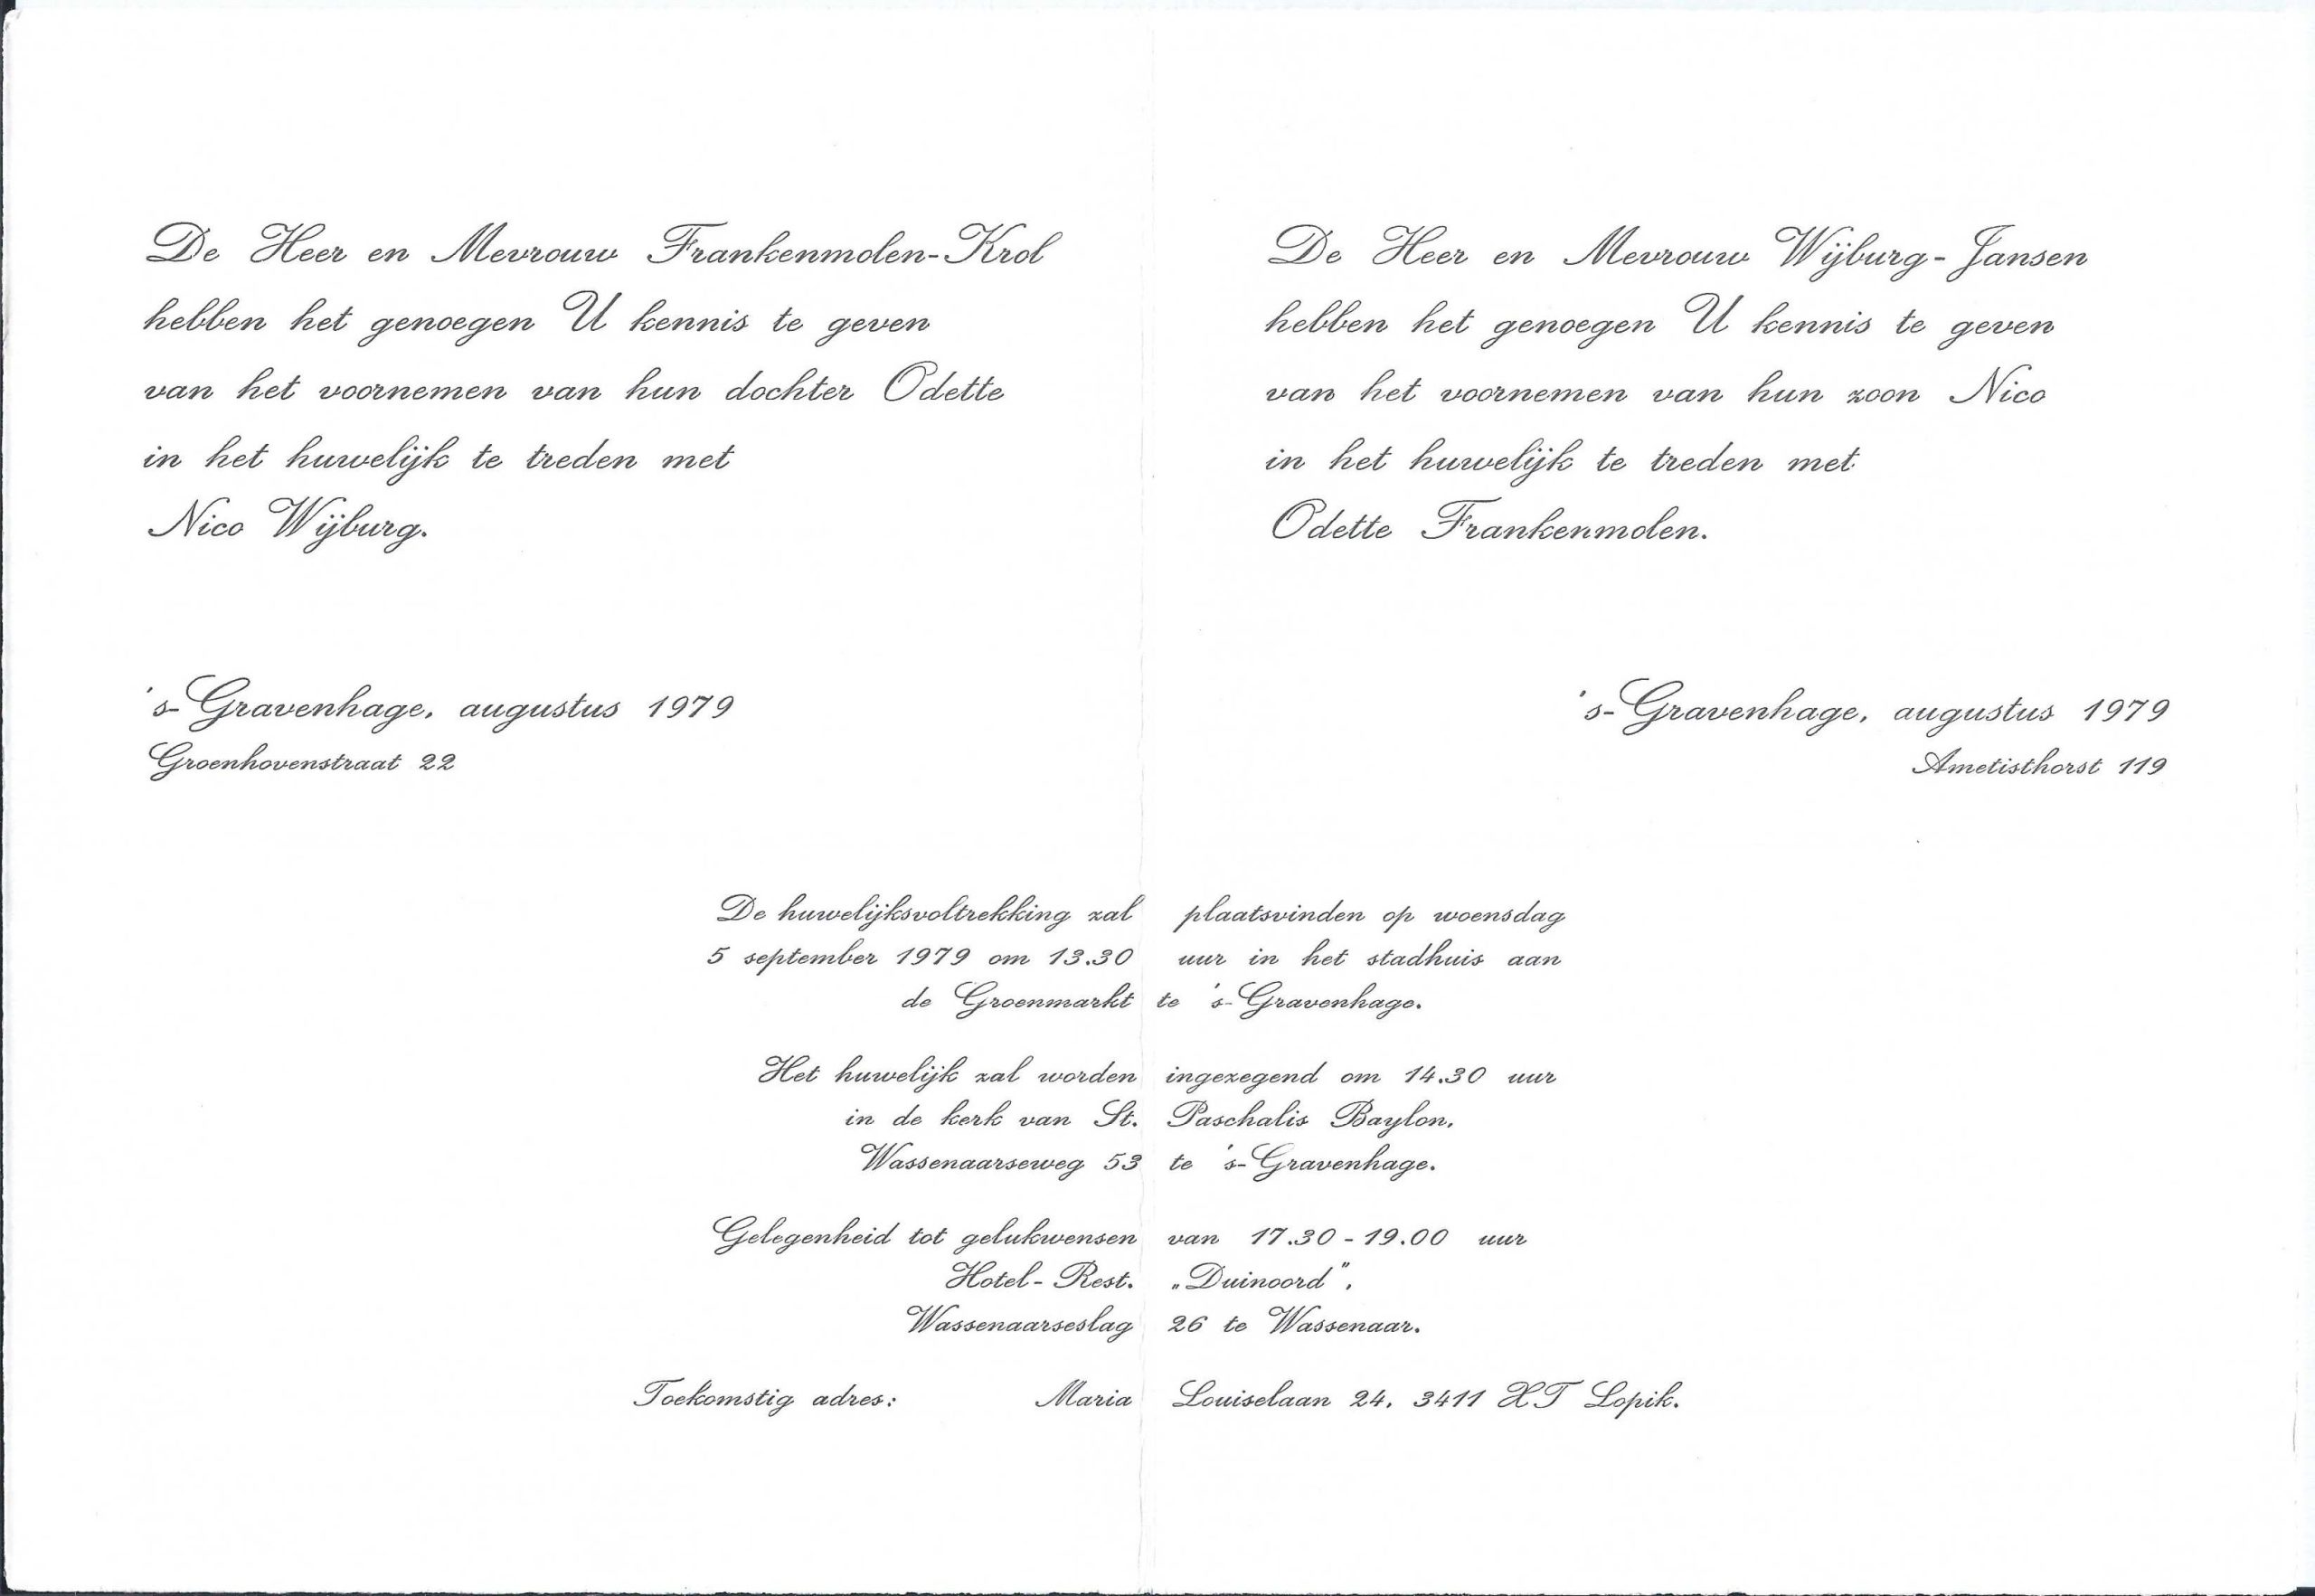 De Heer en Mevrouw Frankenmolen-Krol
hebben het genoegen U kennis te geven
van het voornemen van hun dochter Odette
in het huwelijk te treden met
Nico Wijburg.
's-Gravenhage, augustus 1979
Groenhovenstraat 22
De Heer en Mevrouw Wijburg-Jansen
hebben het genoegen U kennis te geven
van het voornemen van hun zoon Nico
in het huwelijk te treden met
Odette Frankenmolen.
's-Gravenhage, augustus 1979
Ametisthorst 119
De huwelijksvoltrekking zal plaatsvinden op woensdag
5 september 1979 om 13.30 uur in het stadhuis aan
de Groenmarkt te 's-Gravenhage.
Het huwelijk zal worden ingezegend om 14.30 uur
in de kerk van St. Paschalis Baylon,
Wassenaarseweg 53 te 's-Gravenhage.
Gelegenheid tot gelukwensen van 17.30 - 19.00 uur
Hotel- Rest. „Duinoord",
Wassenaarseslag 26 te Wassenaar.
Toekomstig adres: Maria Louiselaan 24, 3411 XT Lopik.